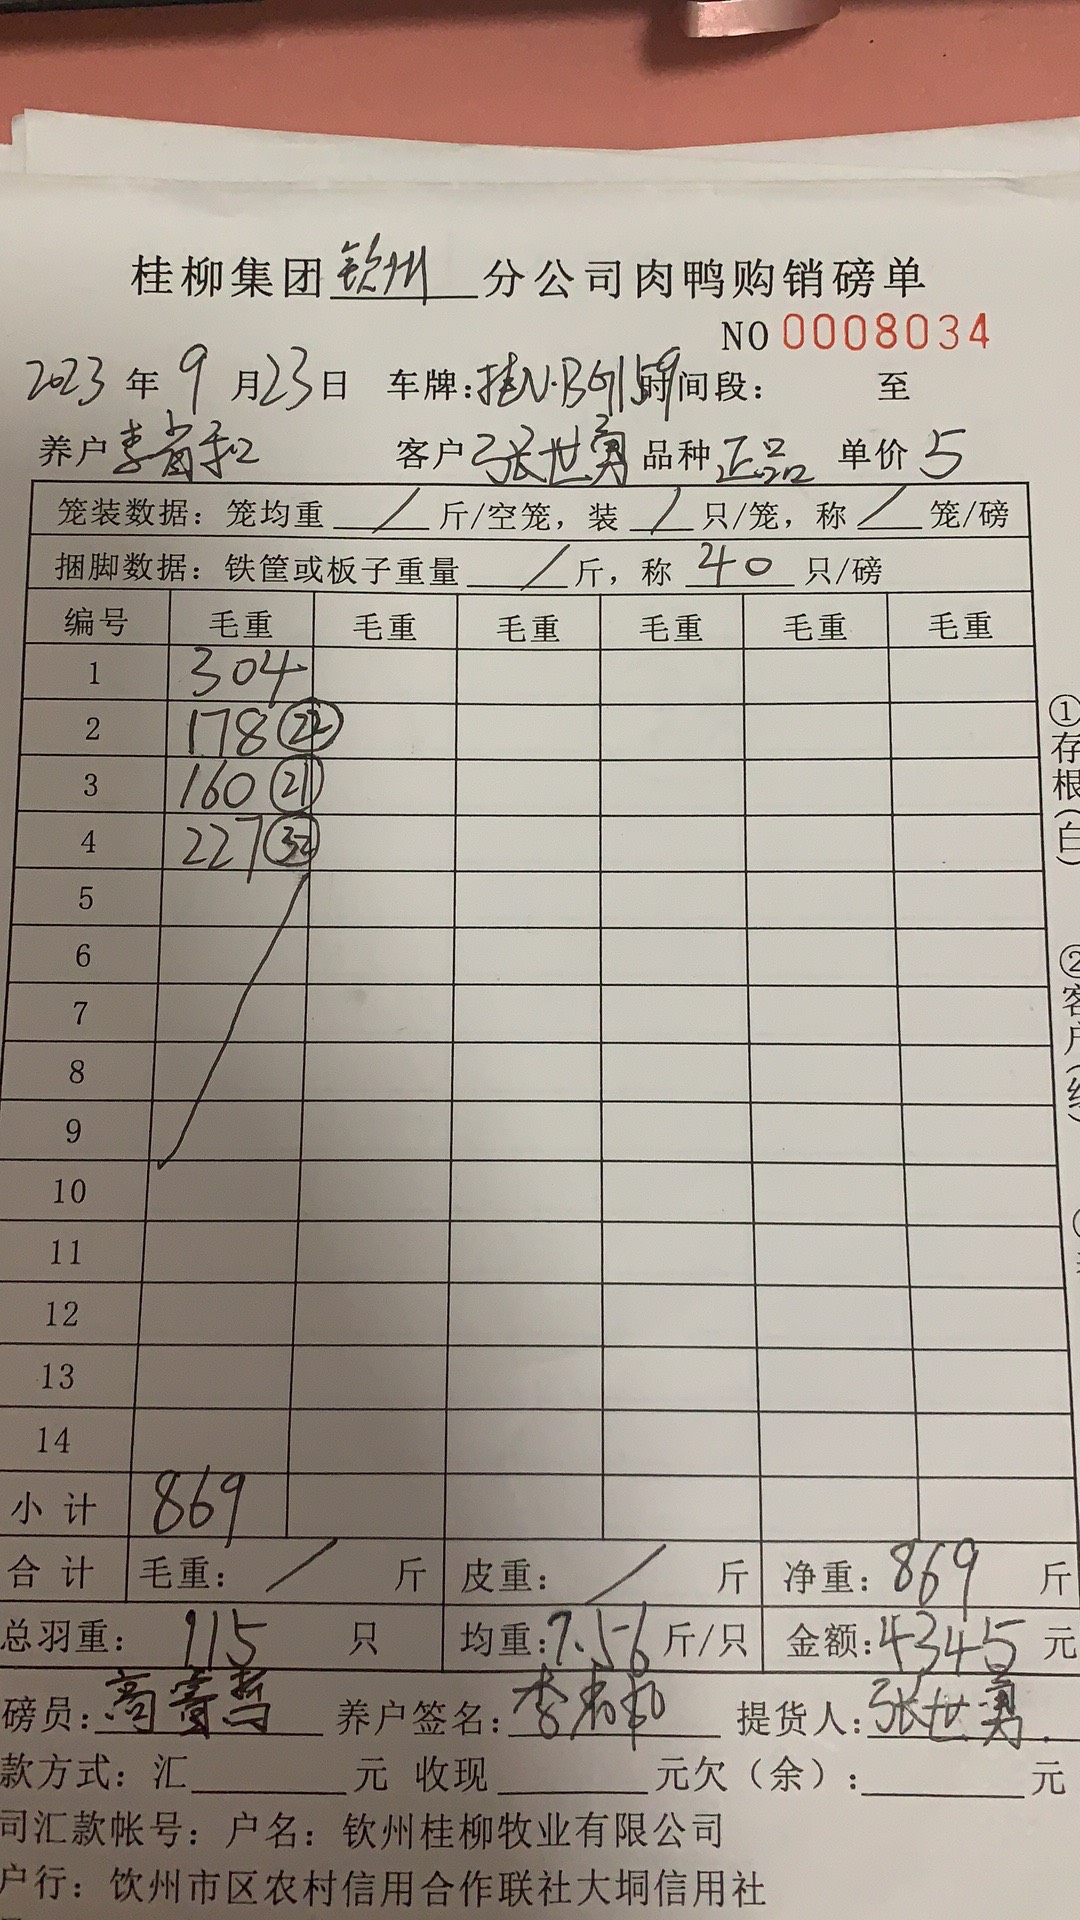 桂柳集团钦州分公司肉鸭购销磅单
NO 0008034
2023年9月23日 车牌:桂N·BG159 时间段: 至
养户 客户张世勇 品种正品 单价5
笼装数据:笼均重/斤/空笼,装/只/笼,称/笼/磅
捆脚数据:铁筐或板子重量/斤,称40只/磅
编号 毛重 毛重 毛重 毛重 毛重 毛重
1 304
2 178 22
3 160 21
4 227 32
5
6
7
8
9
10
11
12
13
14
小计 869
合计 毛重:/斤 皮重:/斤 净重:869斤
总羽重:115只 均重:7.56斤/只 金额:4345元
磅员: 养户签名: 提货人:张世勇
款方式:汇 元 收现 元欠(余): 元
司汇款帐号:户名:钦州桂柳牧业有限公司
户行:钦州市区农村信用合作联社大垌信用社
①存根(白)
②客户(红)